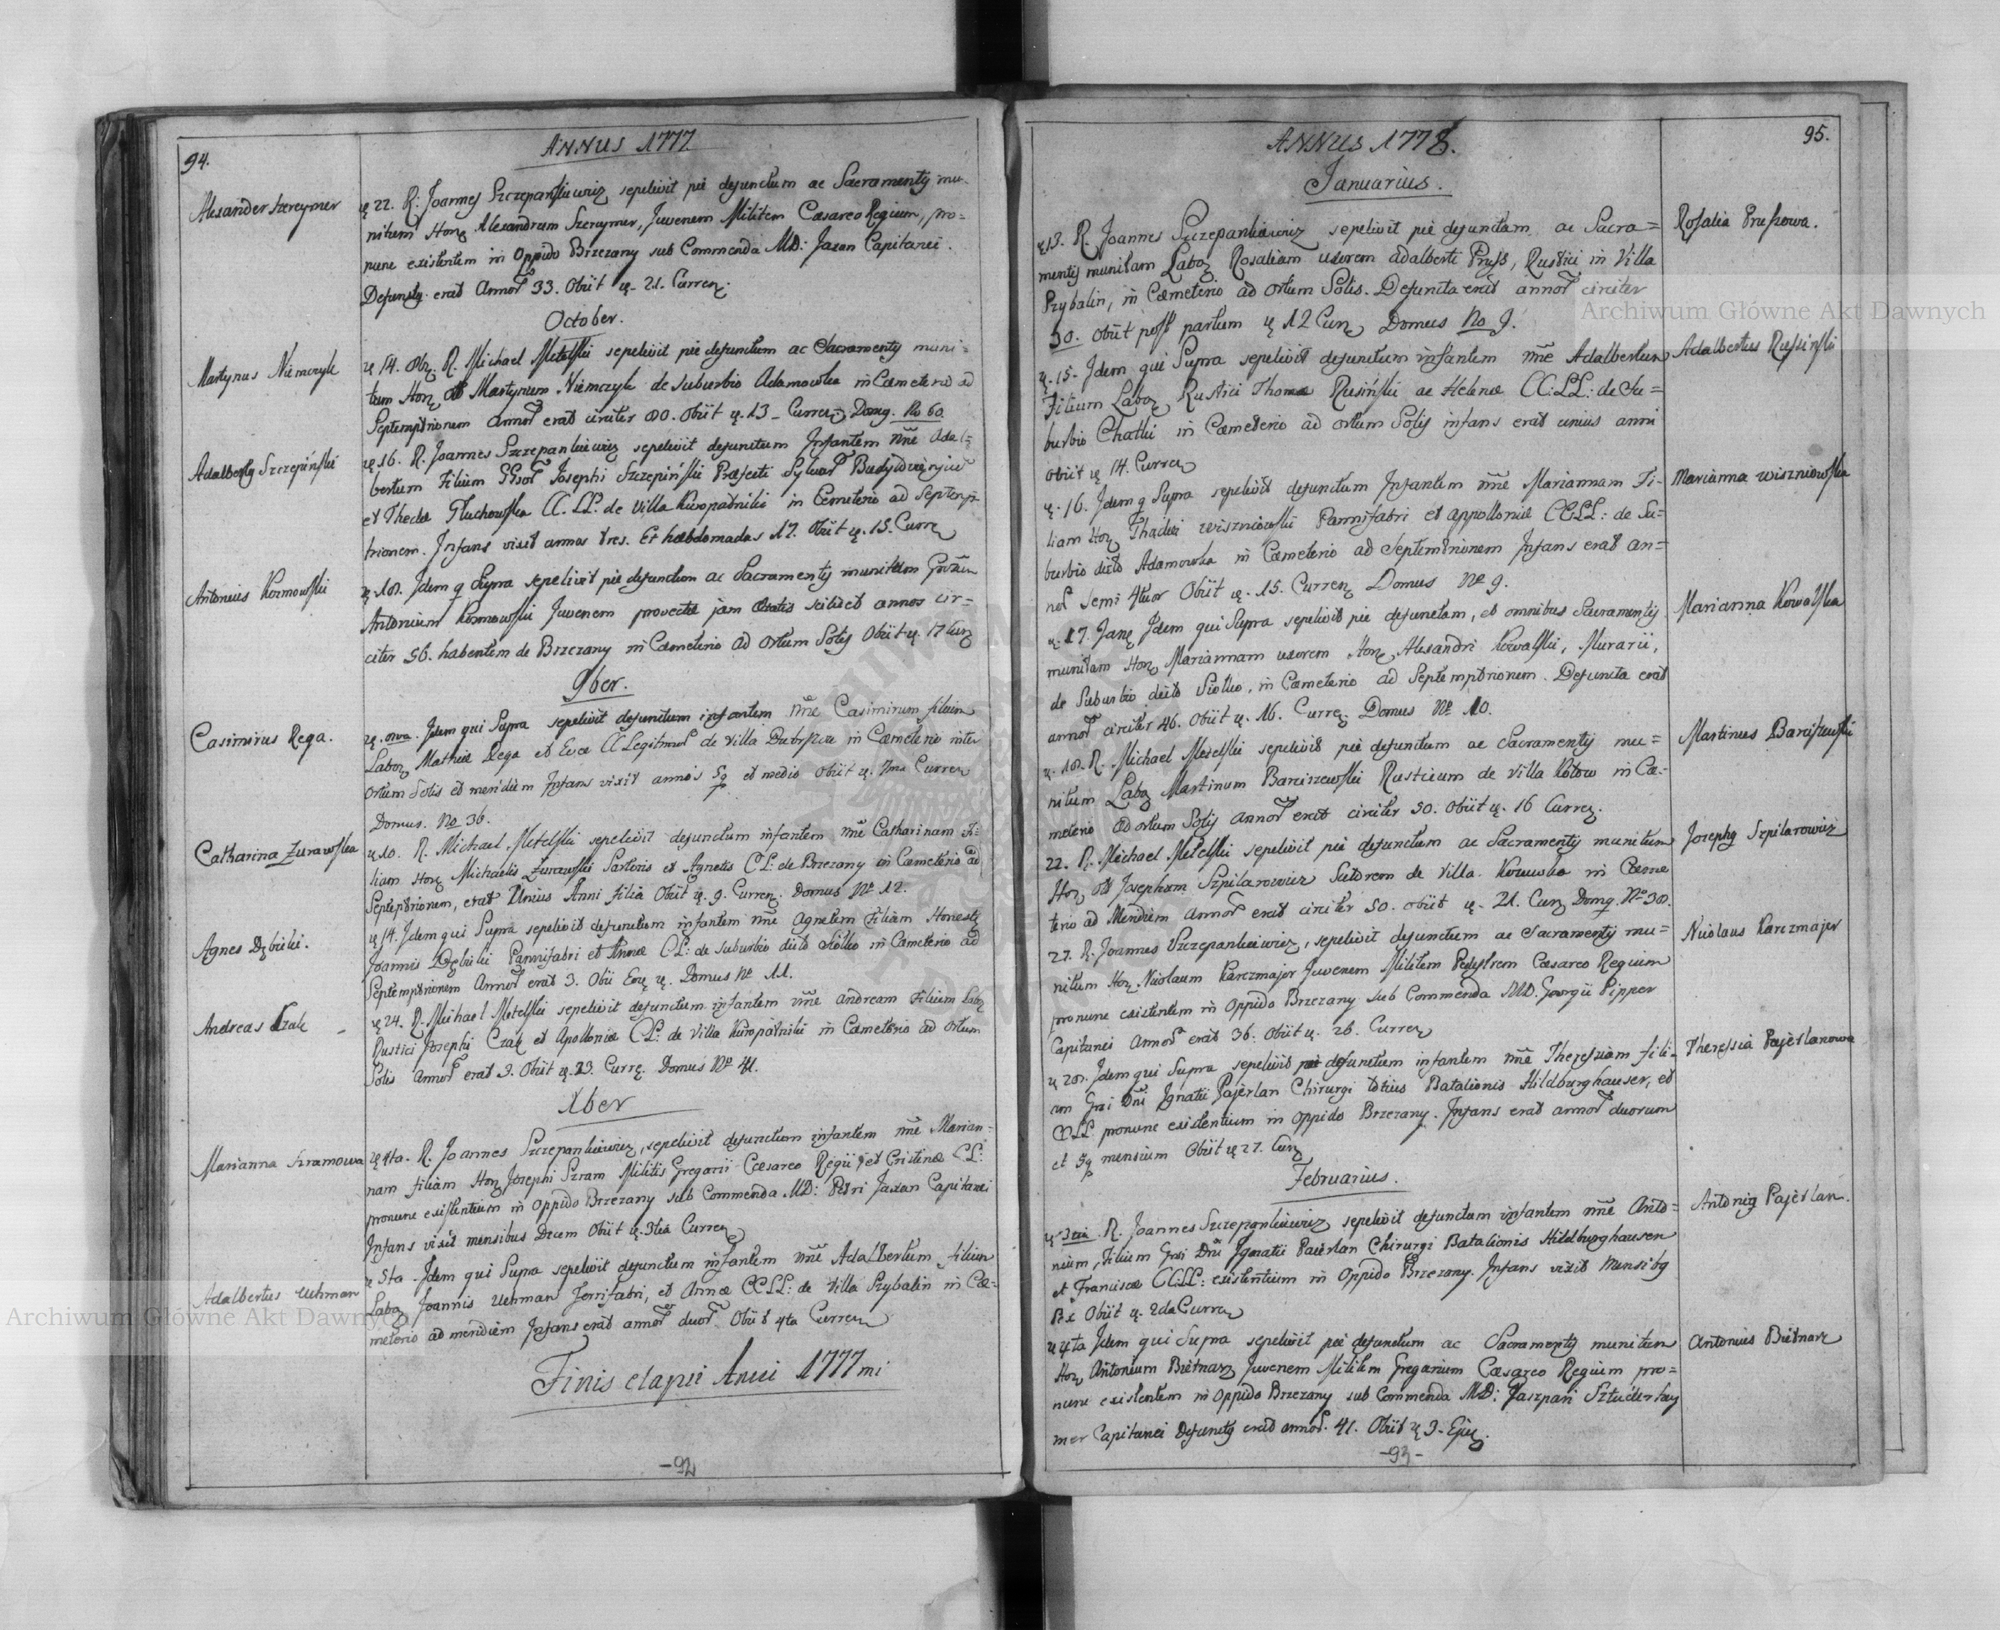 94.
ANNUS 1777
Alexander Szereymer
22. R. Joannes Szczepankiewicz sepelivit pie defunctum ac Sacramentis mu-
nitum Hon Alexandrum Szereymer, Juvenem Militem Cæsareo Regium, pro=
nunc existentem in Oppido Brzezany sub Commenda MD: Jaxan Capitanei.
Defunctus erat Annor 33. Obiit 21. Curren.
October.
Martynus Niemczyk
14. R. Michael Metelski sepelivit pie defunctum ac Sacramentis muni=
tum Hon Martynum Niemczyk de Suburbio Adamowka in Cæmeterio ad
Septemptrionem annor erat circiter 80. Obiit 13 Curren. Domus No 60.
Adalbertus Szczepiński
16. R. Joannes Szczepankiewicz sepelivit defunctum Infantem nne Adal=
bertum Filium Josephi Szczepiński Præfecti Sylvar
et Theclæ Głuchowska CC. LL. de Villa Kuropatniki in Cemeterio ad Septemp=
trionem. Infans vixit annos tres. Et hæbdomadas 17. Obiit 15. Curren
Antonius Kozmowski
18. Idem q Supra sepelivit pie defunctum ac Sacramentis munitum
Antonium Kozmowski Juvenem provectæ jam ætatis scilicet annos cir=
citer 56. habentem de Brzezany in Cæmeterio ad Ortum Solis Obiit 17 Curr
9ber.
Casimirus Rega.
8va. Idem qui Supra sepelivit defunctum infantem nne Casimirum filium
Labor Mathiæ Rega et Evæ CC Legitimor de Villa in Cæmeterio inter
Ortum Solis et meridiem Infans vixit annos 5q et medio Obiit 7ma Curren
Domus. No 36.
Catharina Zurawska
10. R. Michael Metelski sepelivit defunctum infantem nne Catharinam Fi=
liam Hon Michaelis Zurawski Sartoris et Agnetis CL: de Brzezany in Cæmeterio ad
Septemptrionem, erat Unius Anni filia Obiit 9. Curren. Domus No 12.
Agnes Dębicki.
14. Idem qui Supra sepelivit defunctum infantem nne Agnetem Filiam Honesti
Joannis Dębicki Pannifabri et Annæ CL: de Suburbio dicto Siółko in Cæmeterio ad
Septemptrionem Annor erat 3. Obii Domus No 11.
Andreas Czak
24. R. Michael Metelski sepelivit defunctum infantem nne Andream Filium Labor
Rustici Josephi Czak et Apolloniæ CL: de Villa Kuropatniki in Cæmeterio ad Ortum
Solis Annor erat 3. Obiit 23. Curre. Domus No 41.
Xber
Marianna Szramowa
4ta. R. Joannes Szczepankiewicz, sepelivit defunctum infantem nne Marian=
nam filiam Hon Josephi Szram Militis Gregarii Cæsareo Regii et Cristinæ CL:
pronunc existentium in Oppido Brzezany sub Commenda MD: Petri Jaxan Capitanei
Infans vixit mensibus Decem Obiit 3tia Curren
Adalbertus Uchman
5ta. Idem qui Supra sepelivit defunctum infantem nne Adalbertum filium
Labor Joannis Uchman Ferrifabri, et Annæ CCLL: de Villa Szybalin in Cæ=
meterio ad meridiem Infans erat annor duor. Obiit 4ta Curren
Finis elapsi Anni 1777mi
-92
ANNUS 1778.
95.
Januarius.
13. R. Joannes Szczepankiewicz sepelivit pie defunctam ac Sacra=
mentis munitam Labor Rosaliam uxorem Adalberti Pruss, Rustici in Villa
Szybalin, in Cæmeterio ad ortum Solis. Defuncta erat annor circiter
30. Obiit post partum 12 Curr Domus No 9.
Rosalia Prusowa.
15. Idem qui Supra sepelivit defunctum infantem nne Adalbertum
Filium Labor Rustici Thomæ Rusiński ac Helenæ CC:LL: de Su=
burbio Chatki in Cæmeterio ad ortum Solis infans erat unius anni
Obiit 14. Curren
Adalbertus Russiński
16. Idem q Supra sepelivit defunctum Infantem nne Mariannam Fi=
liam Hon Thadei Wiszniowski Pannifabri et Appolloniæ CCLL: de Su=
burbio dicto Adamowka in Cæmeterio ad Septemtrionem Infans erat an=
nor semi 4tuor Obiit 15. Curren Domus No 9.
Marianna Wiszniowska
17. Idem qui Supra sepelivit pie defunctam, et omnibus Sacramentis
munitam Hon Mariannam uxorem Hon Alexandri Kowalski, Murarii,
de Suburbio dicto Siołko, in Cæmeterio ad Septemptrionem. Defuncta erat
annor circiter 46. Obiit 16. Curren Domus No 10.
Marianna Kowalska
18. R. Michael Metelski sepelivit pie defunctum ac Sacramentis mu=
nitum Labor Martinum Barciszewski Rusticum de Villa Potow in Cæ=
meterio ad ortum Solis annor erat circiter 50. Obiit 16 Curren.
Martinus Barciszewski
22. R. Michael Metelski sepelivit pie defunctum ac Sacramentis munitum
Hon Josephum Szpilarowicz Sutorem de Villa in Cæme
terio ad Meridiem annor erat circiter 50. obiit 21. Curr Domus No 38.
Josephus Szpilarowicz
27. R. Joannes Szczepankiewicz, sepelivit defunctum ac Sacramentis mu=
nitum Hon Nicolaum Karczmajer Juvenem Militem Pedestrem Cæsareo Regium
pronunc existentem in Oppido Brzezany sub Commenda MD. Georgii Pipper
Capitanei Annor erat 36. Obiit 26. Curren
Nicolaus Karczmajer
28. Idem qui Supra sepelivit defunctum infantem nne Theressiam fili=
am Gnsi Dni Ignatii Pajerlan Chirurgi totius Batalionis Hildburghauser, et
CCLL. pronunc existentium in Oppido Brzezany. Infans erat annor duorum
et 5q mensium Obiit 27. Curr
Theressia Pajerlanowa
Februarius.
3tia R. Joannes Szczepankiewicz sepelivit defunctum infantem nne Anto=
nium, Filium Gnsi Dni Ignatii Paierlan Chirurgi Batalionis Hildburghausen
et Franciscæ CCLL: existentium in Oppido Brzezany. Infans vixit mensibus
Obiit 2da Curren
Antonius Pajerlan.
4ta Idem qui Supra sepelivit pie defunctum ac Sacramentis munitum
Hon Antonium Bietnarz Juvenem Militem Gregarium Cæsareo Regium pro=
nunc existentem in Oppido Brzezany sub Commenda MD:
mer Capitanei Defunctus erat annor. 41. Obiit 3.
Antonius Bietnarz
-93-
Archiwum Główne Akt Dawnych
Archiwum Główne Akt Dawnych